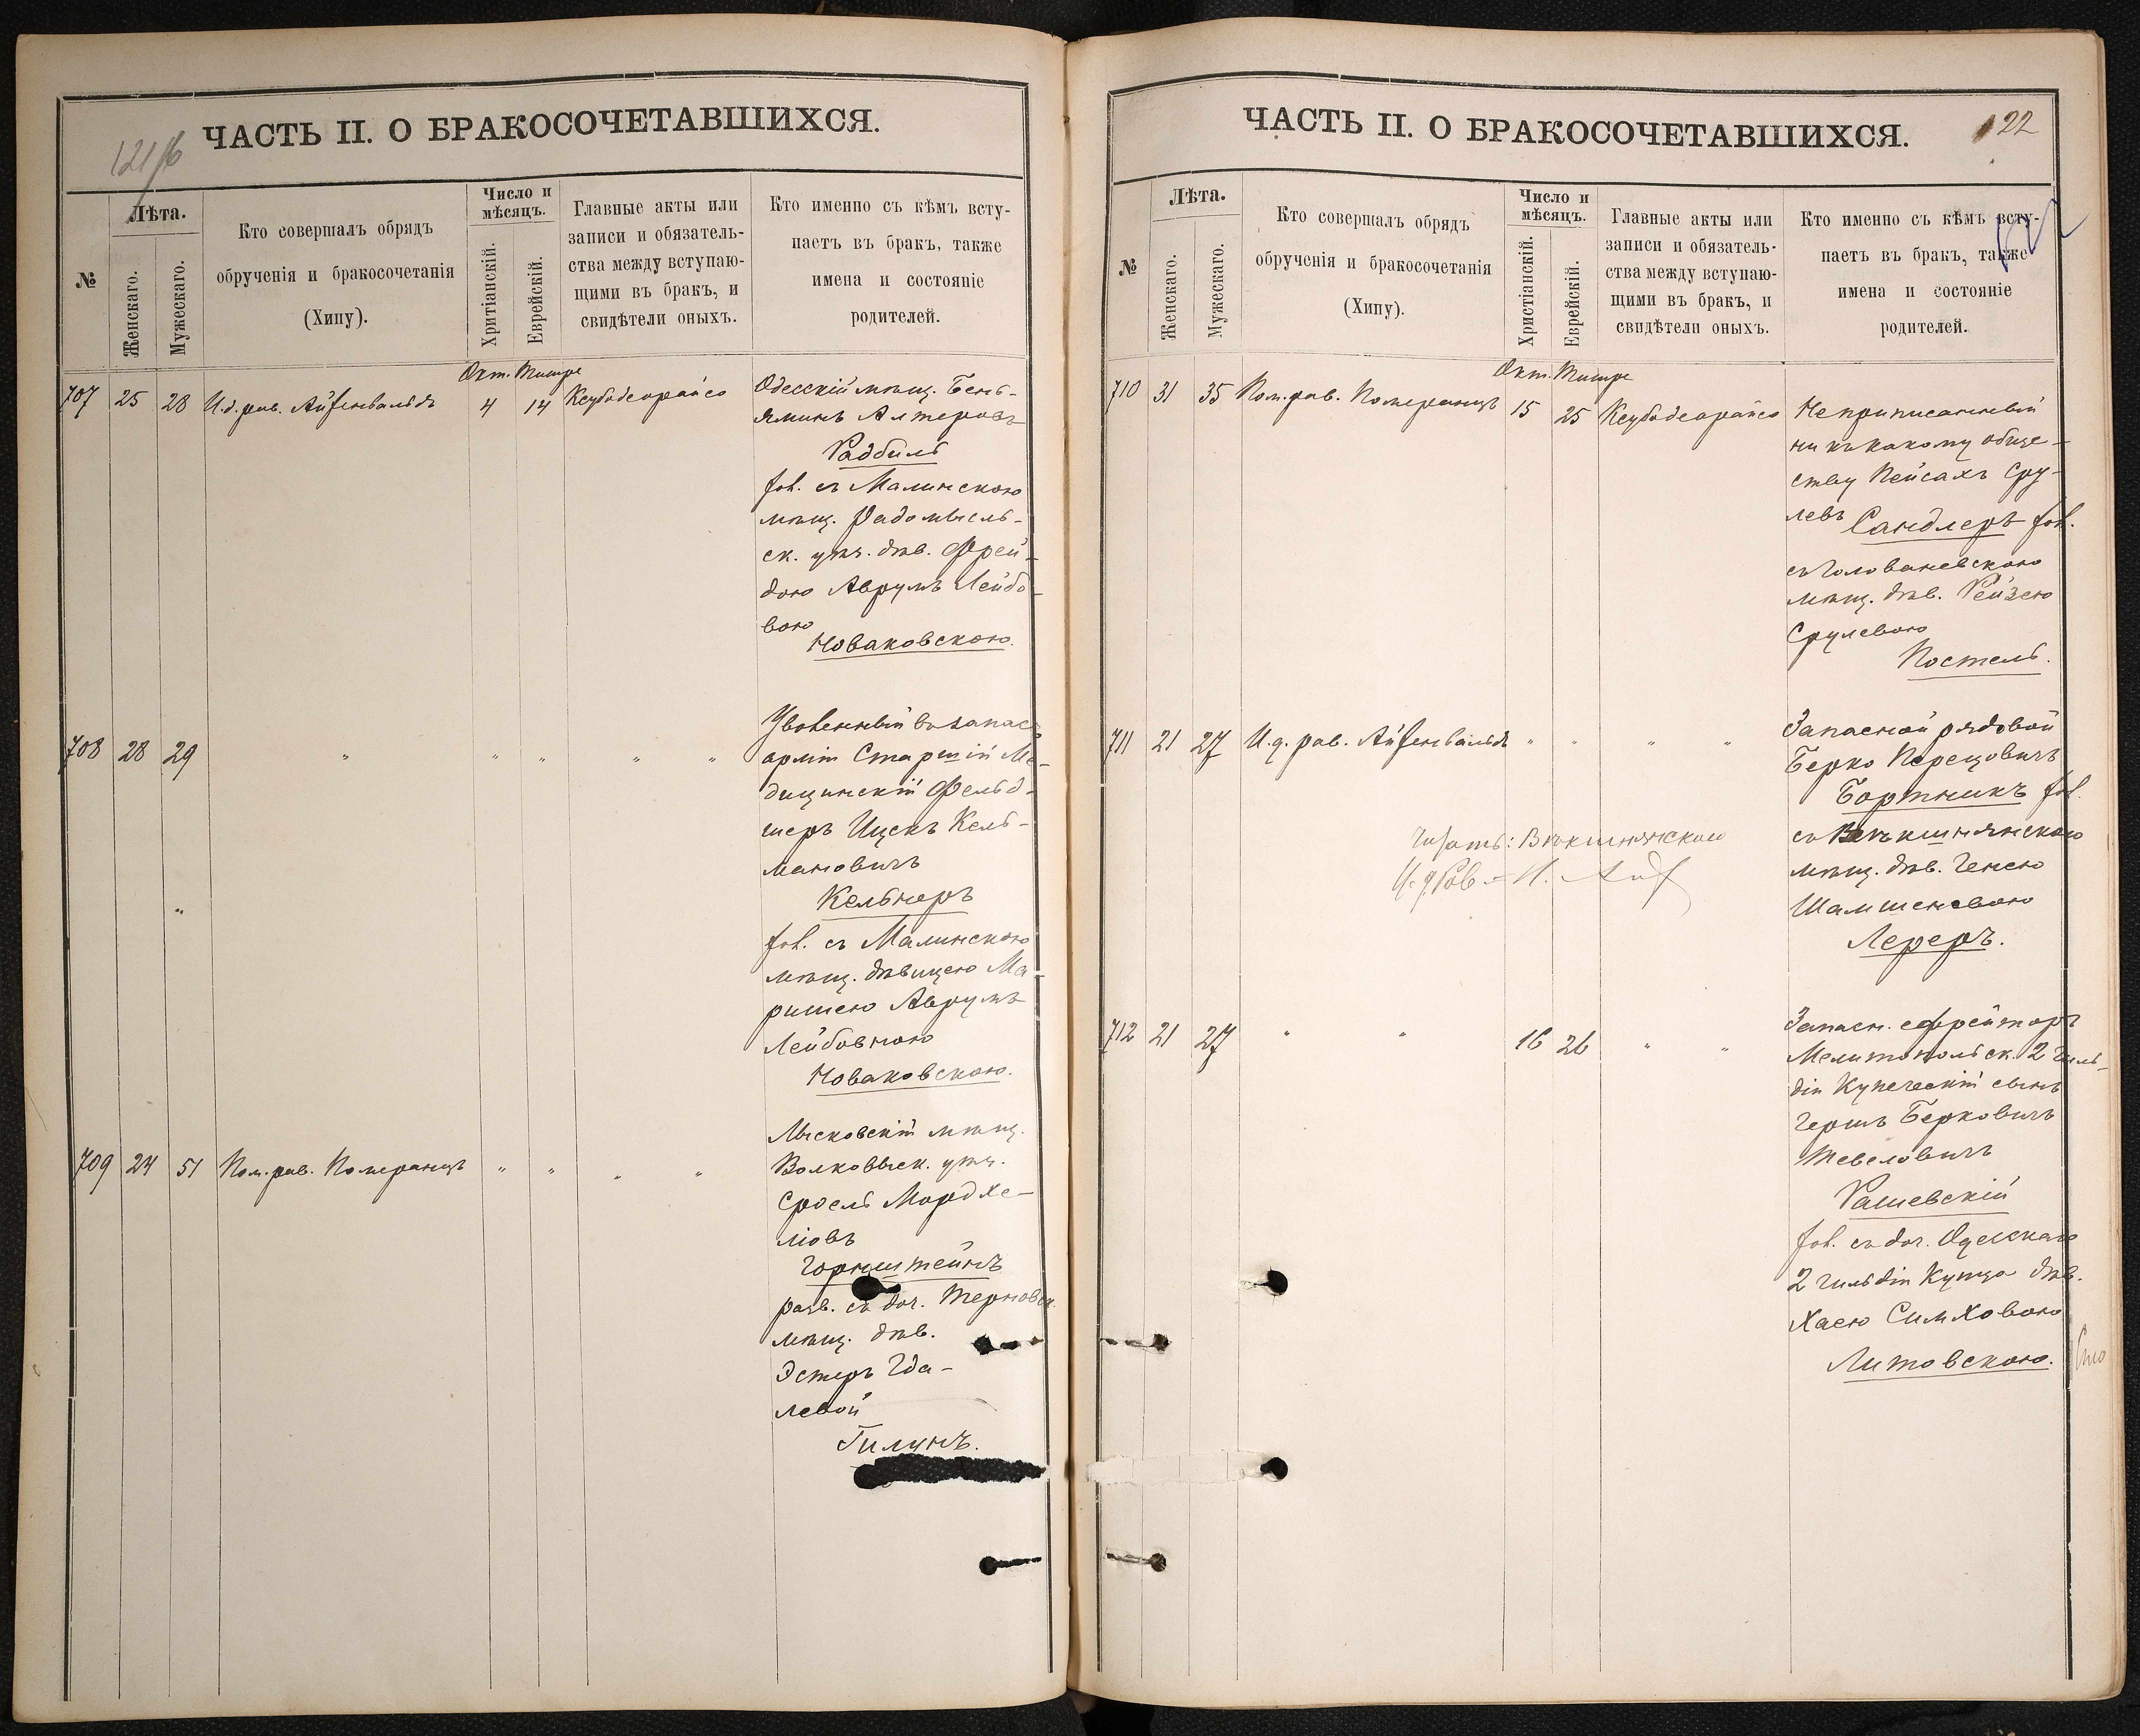 121/б
ЧАСТЬ II. О БРАКОСОЧЕТАВШИХСЯ.
№
Лѣта.
Женскаго.
Мужескаго.
Кто совершалъ обрядъ
обрученія и бракосочетанія
(Хипу).
Число и
мѣсяцъ.
Хритіанскій.
Еврейскій.
Главные акты или
записи и обязатель-
ства между вступаю-
щими въ бракъ, и
свидѣтели оныхъ.
Кто именно съ кѣмъ всту-
паетъ въ бракъ, также
имена и состояніе
родителей.
Окт. Тишре
707 25 28 И.д. рав. Айзенвальдъ 4 14 Ксубодеорайсо
Одесскій мѣщ. Бень-
яминъ Алтеровъ
Радбиль
хол. съ Малинскою
мѣщ. Радомысль-
ск. уѣз. дѣв. Фрей-
дою Аврумъ Лейбо-
вою
Новаковскою.
708 28 29 " " " " "
Уволенный въ запасъ
арміи Старшій Ме-
дицинскій Фельд-
шеръ Ицекъ Кель-
мановичъ
Кельнеръ
хол. съ Малинскою
мѣщ. дѣвицею Ма-
ришею Аврумъ
Лейбовною
Новаковскою.
709 24 51 Пом. рав. Померанцъ " " " "
Лысковскій мѣщ.
Волковыск. уѣз.
Сроель Мордхе-
ліовъ
Горнштейнъ
разв. съ доч. Терновск.
мѣщ. дѣв.
Эстеръ Гда-
левой
Гилунъ.
ЧАСТЬ II. О БРАКОСОЧЕТАВШИХСЯ.
122
№
Лѣта.
Женскаго.
Мужескаго.
Кто совершалъ обрядъ
обрученія и бракосочетанія
(Хипу).
Число и
мѣсяцъ.
Христіанскій.
Еврейскій.
Главные акты или
записи и обязатель-
ства между вступаю-
щими въ бракъ, и
свидѣтели оныхъ.
Кто именно съ кѣмъ всту-
паетъ въ бракъ, также
имена и состояніе
родителей.
Окт. Тишре
710 31 35 Пом. рав. Померанцъ 15 25 Ксубодеорайсо
Неприписанный
ни къ какому обще-
ству Пейсахъ Сру-
левъ Сандлеръ хол.
съ Голованевскою
мѣщ. дѣв. Рейзею
Срулевою
Постель.
711 21 27 И.д. рав. Айзенвальдъ " " " "
Запасной рядовой
Берко Перецовичъ
Бортникъ хол.
съ Векшнянскою
мѣщ. дѣв. Генею
Шамшеневою
Лереръ.
Читать: Векшнянскою
И.д. Рав.
712 21 27 " " 16 26 " "
Запасн. ефрейторъ
Мелитопольск. 2 гиль-
діи Купеческій сынъ
Гершъ Берковичъ
Тевеловичъ
Рашевскій
хол. съ доч. Одесскаго
2 гильдіи Купца дѣв.
Хаею Симховою
Литовскою.